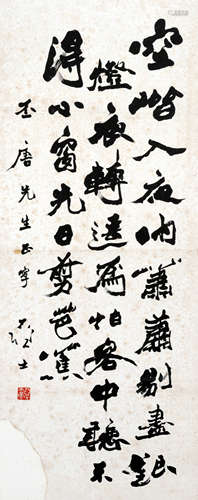 空堦入夜雨蕭蕭剔盡銀
燈夜轉遙為怕客中聽不
得小窗先日剪芭蕉
唐先生正